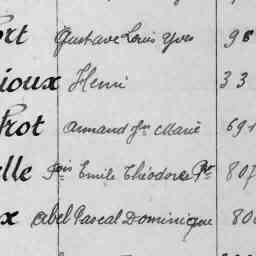 ort Gustave Louis Yves 98
ioux Henri 33
hot Armand Jn Marie 691
elle Fois Emile Théodore Pre 807
x Abel Pascal Dominique 80